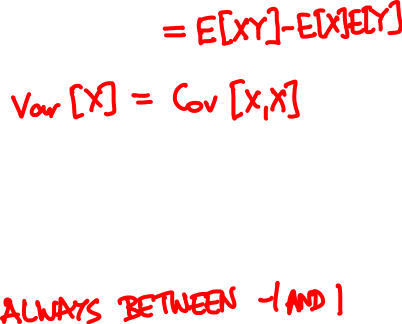 = E[XY]-E[X]E[Y]
Var [X] = Cov [X,X]
ALWAYS BETWEEN -1 AND 1